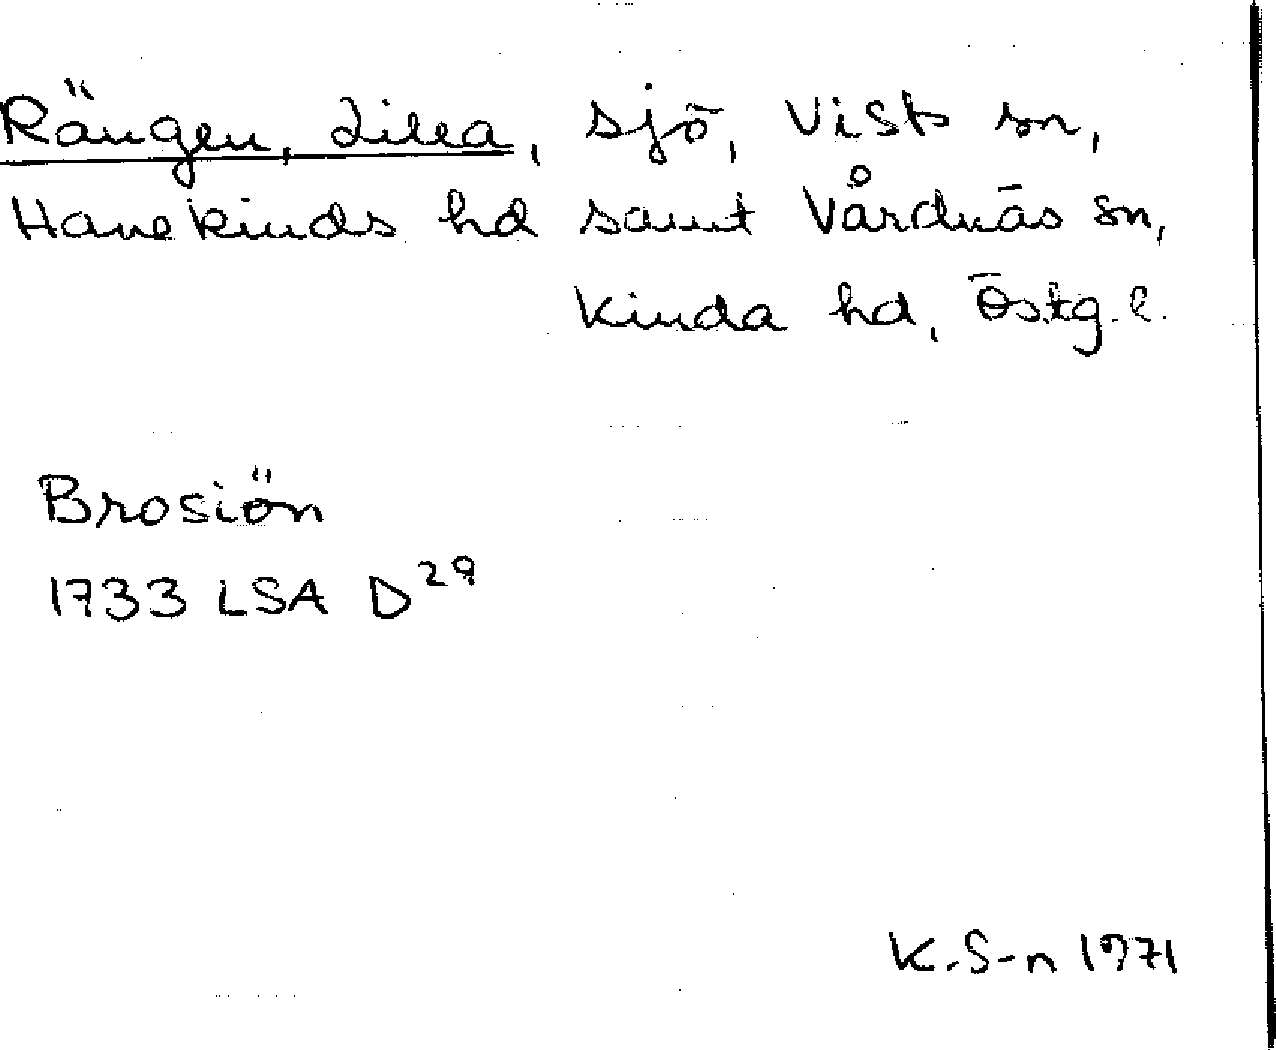 Rängen, Lilla, sjö, Vists sn,
Hanekinds hd samt Vårdnäs sn,
Kinda hd, Östg. l.
Brosiön
1733 LSA D 29
K. S-n 1971